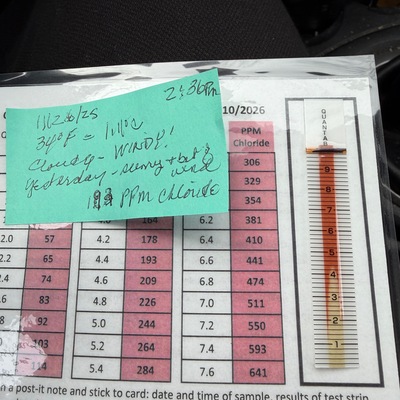 2:36pm
11/28/25
34°F = 1.11°C
Cloudy - WINDY!
Yesterday - sunny +
wind
PPM Chloride
10/2026
PPM
Chloride
306
329
354
6.2 381
2.0 57 4.2 178 6.4 410
2.2 65 4.4 193 6.6 441
2.4 74 4.6 209 6.8 474
.6 83 4.8 226 7.0 511
8 92 5.0 244 7.2 550
103 5.2 264 7.4 593
114 5.4 284 7.6 641
QUANTAB
9
8
7
6
5
4
3
2
1
n a post-it note and stick to card: date and time of sample, results of test strip